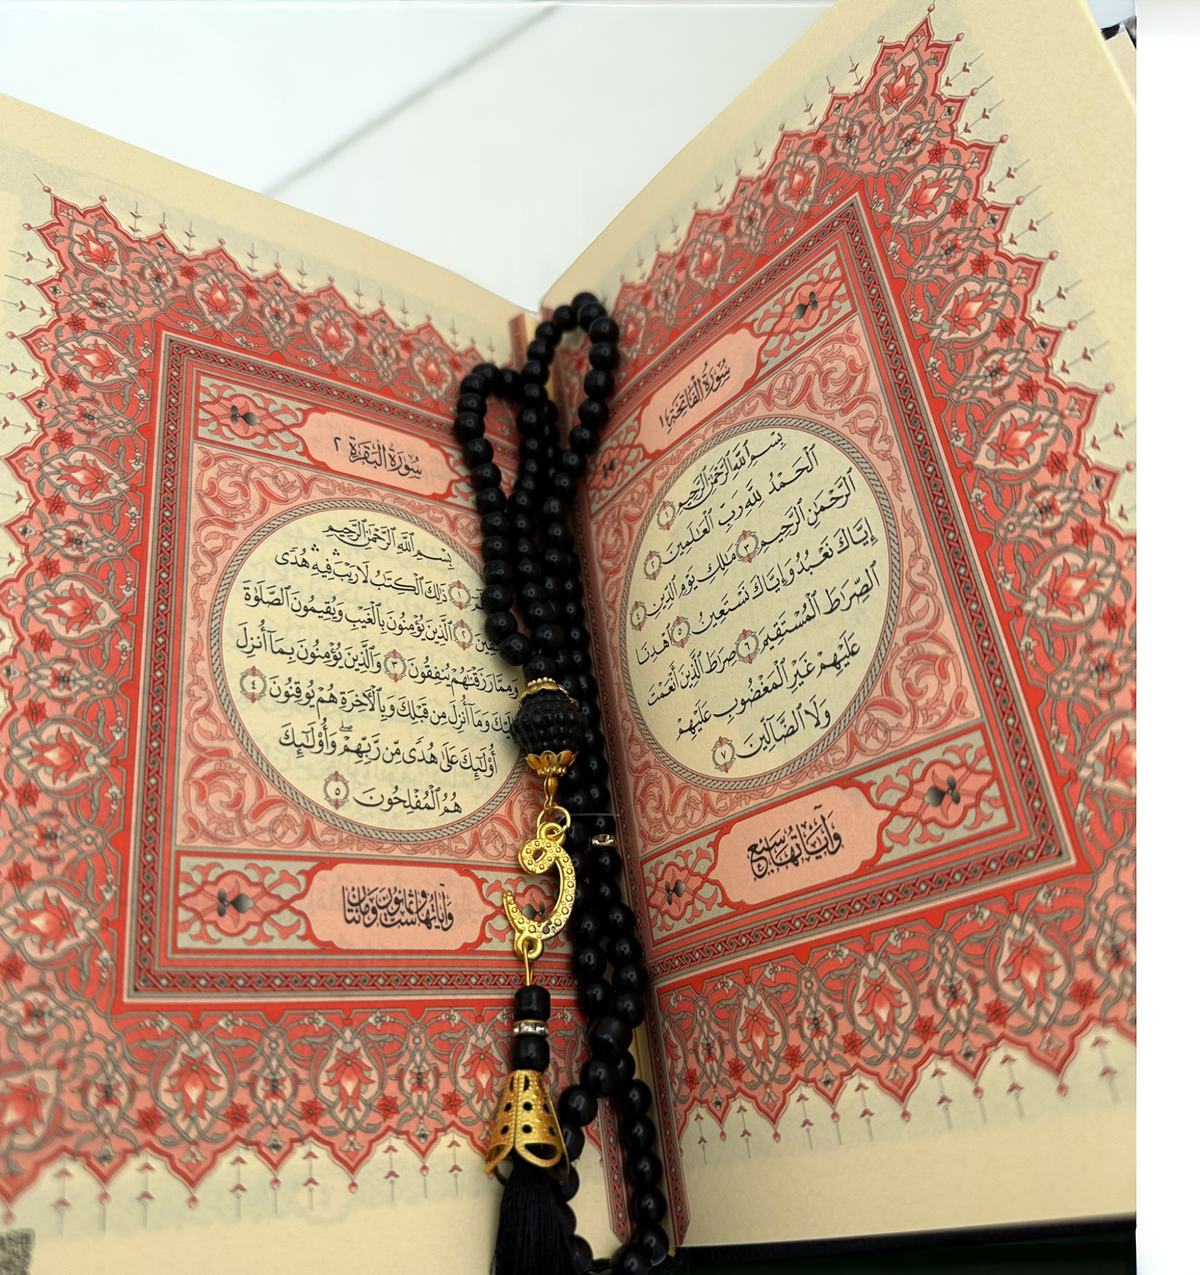 سُورَةُ الْفَاتِحَةِ ١
بِسْمِ ٱللَّهِ ٱلرَّحْمَٰنِ ٱلرَّحِيمِ ١
ٱلْحَمْدُ لِلَّهِ رَبِّ ٱلْعَٰلَمِينَ ٢
ٱلرَّحْمَٰنِ ٱلرَّحِيمِ ٣ مَٰلِكِ يَوْمِ ٱلدِّينِ ٤
إِيَّاكَ نَعْبُدُ وَإِيَّاكَ نَسْتَعِينُ ٥ ٱهْدِنَا
ٱلصِّرَٰطَ ٱلْمُسْتَقِيمَ ٦ صِرَٰطَ ٱلَّذِينَ أَنْعَمْتَ
عَلَيْهِمْ غَيْرِ ٱلْمَغْضُوبِ عَلَيْهِمْ
وَلَا ٱلضَّآلِّينَ ٧
وَآيَاتُهَا سَبْعٌ
سُورَةُ الْبَقَرَةِ ٢
بِسْمِ ٱللَّهِ ٱلرَّحْمَٰنِ ٱلرَّحِيمِ
١ ذَٰلِكَ ٱلْكِتَٰبُ لَا رَيْبَ ۛ فِيهِ ۛ هُدًى
٢ ٱلَّذِينَ يُؤْمِنُونَ بِٱلْغَيْبِ وَيُقِيمُونَ ٱلصَّلَوٰةَ
وَمِمَّا رَزَقْنَٰهُمْ يُنفِقُونَ ٣ وَٱلَّذِينَ يُؤْمِنُونَ بِمَآ أُنزِلَ
وَمَآ أُنزِلَ مِن قَبْلِكَ وَبِٱلْأَخِرَةِ هُمْ يُوقِنُونَ ٤
أُو۟لَٰٓئِكَ عَلَىٰ هُدًى مِّن رَّبِّهِمْ ۖ وَأُو۟لَٰٓئِكَ
هُمُ ٱلْمُفْلِحُونَ ٥
وَآيَاتُهَا سِتٌّ وَثَمَانُونَ وَمِائَتَانِ